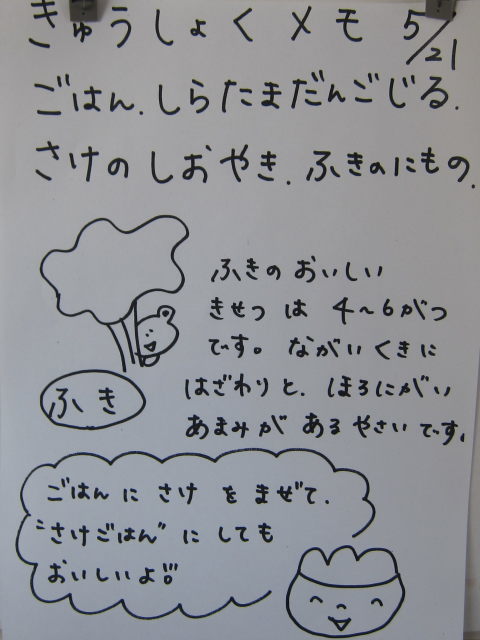 きゅうしょくメモ 5/21
ごはん.しらたまだんごじる.
さけのしおやき.ふきのにもの.
ふきのおいしい
きせつは 4〜6がつ
です。ながいくきに
はざわりと.ほろにがい
あまみがあるやさいです.
ふき
ごはんにさけをまぜて.
"さけごはん"にしても
おいしいよ!!